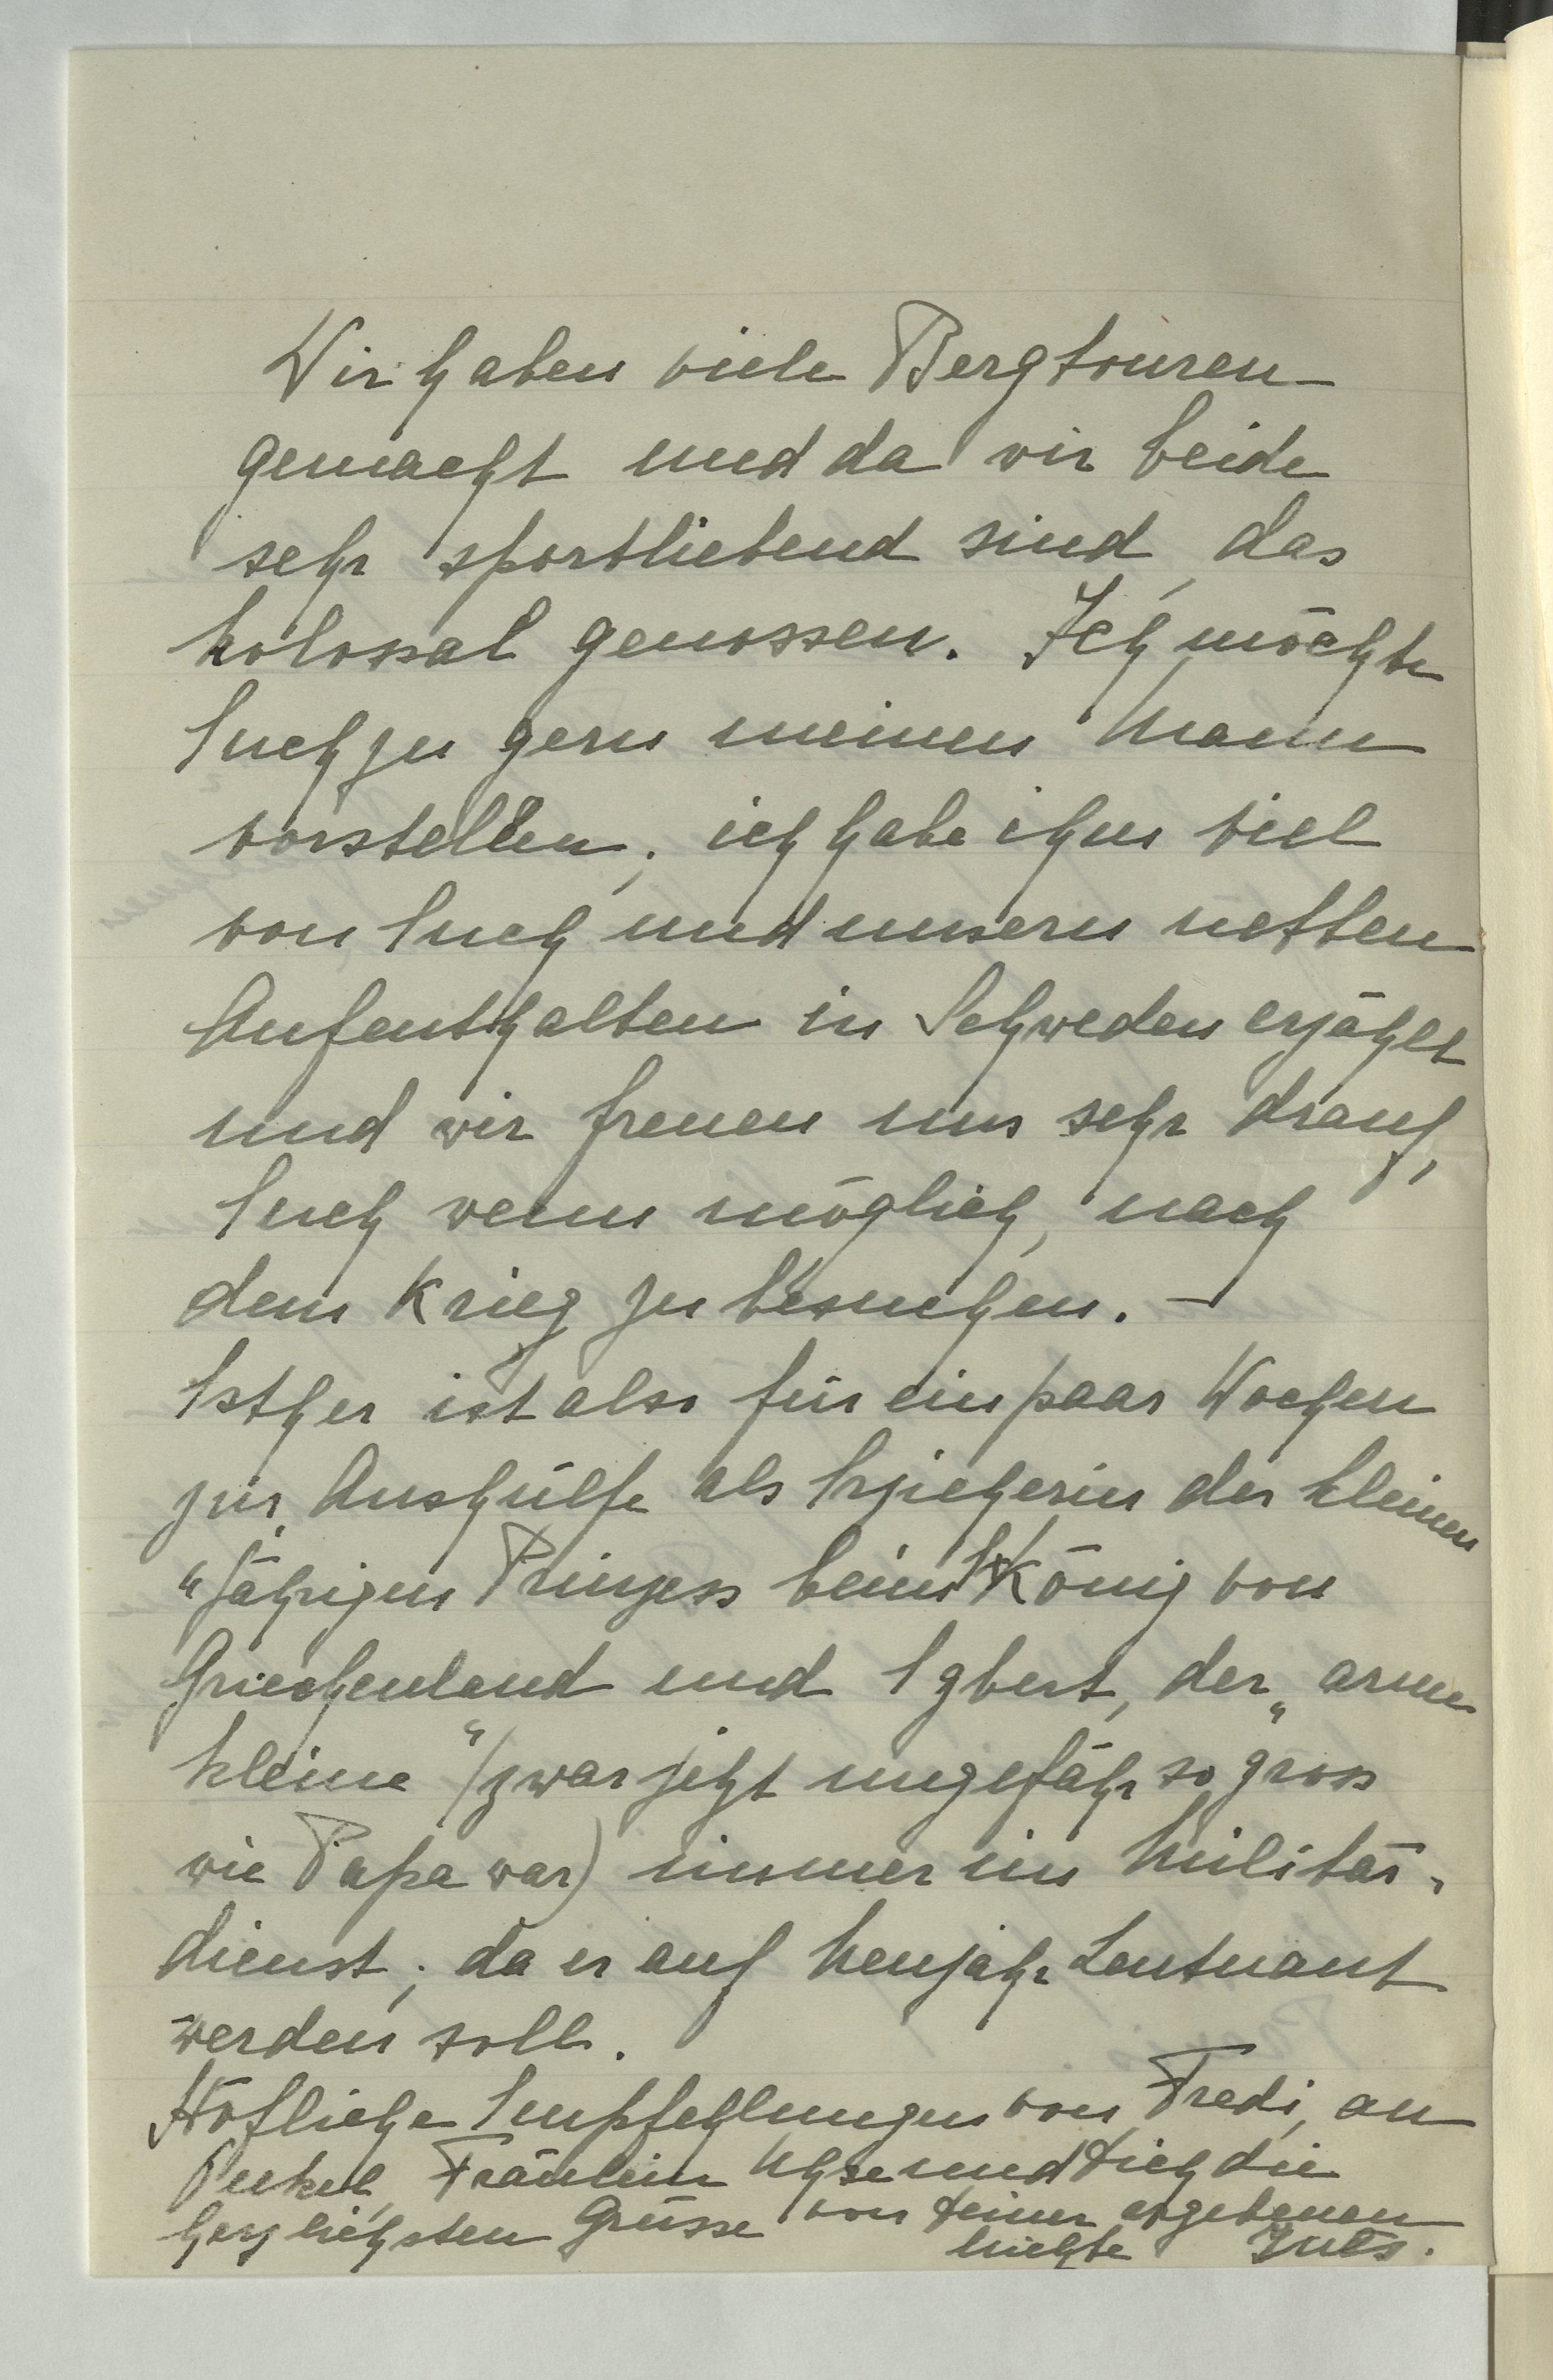 Wir haben viele Bergtouren
gemacht und da wir beide
sehr sportliebend sind, das
kolossal genossen. Ich möchte
Euch zu gern meinen Mann
vorstellen; ich habe ihm viel
von Euch und unsern netten
Aufenthalten in Schweden erzählt
und wir freuen uns sehr drauf,
Euch wenn möglich, nach
dem Krieg zu besuchen. –
Esther ist also für ein paar Wochen
zur Aushülfe als Erzieherin der kleinen
4 jährigen Prinzess beim König von
Griechenland und Egbert, der „arme
kleine" (zwar jetzt ungefähr so gross
wie Papa war) immer im Militär-
dienst; da er auf Neujahr Leutnant
werden soll.
Höfliche Empfehlungen von Fredi, an
Onkel, Fräulein und Dich die
herzlichsten Grüsse von Deiner ergebenen
Nichte